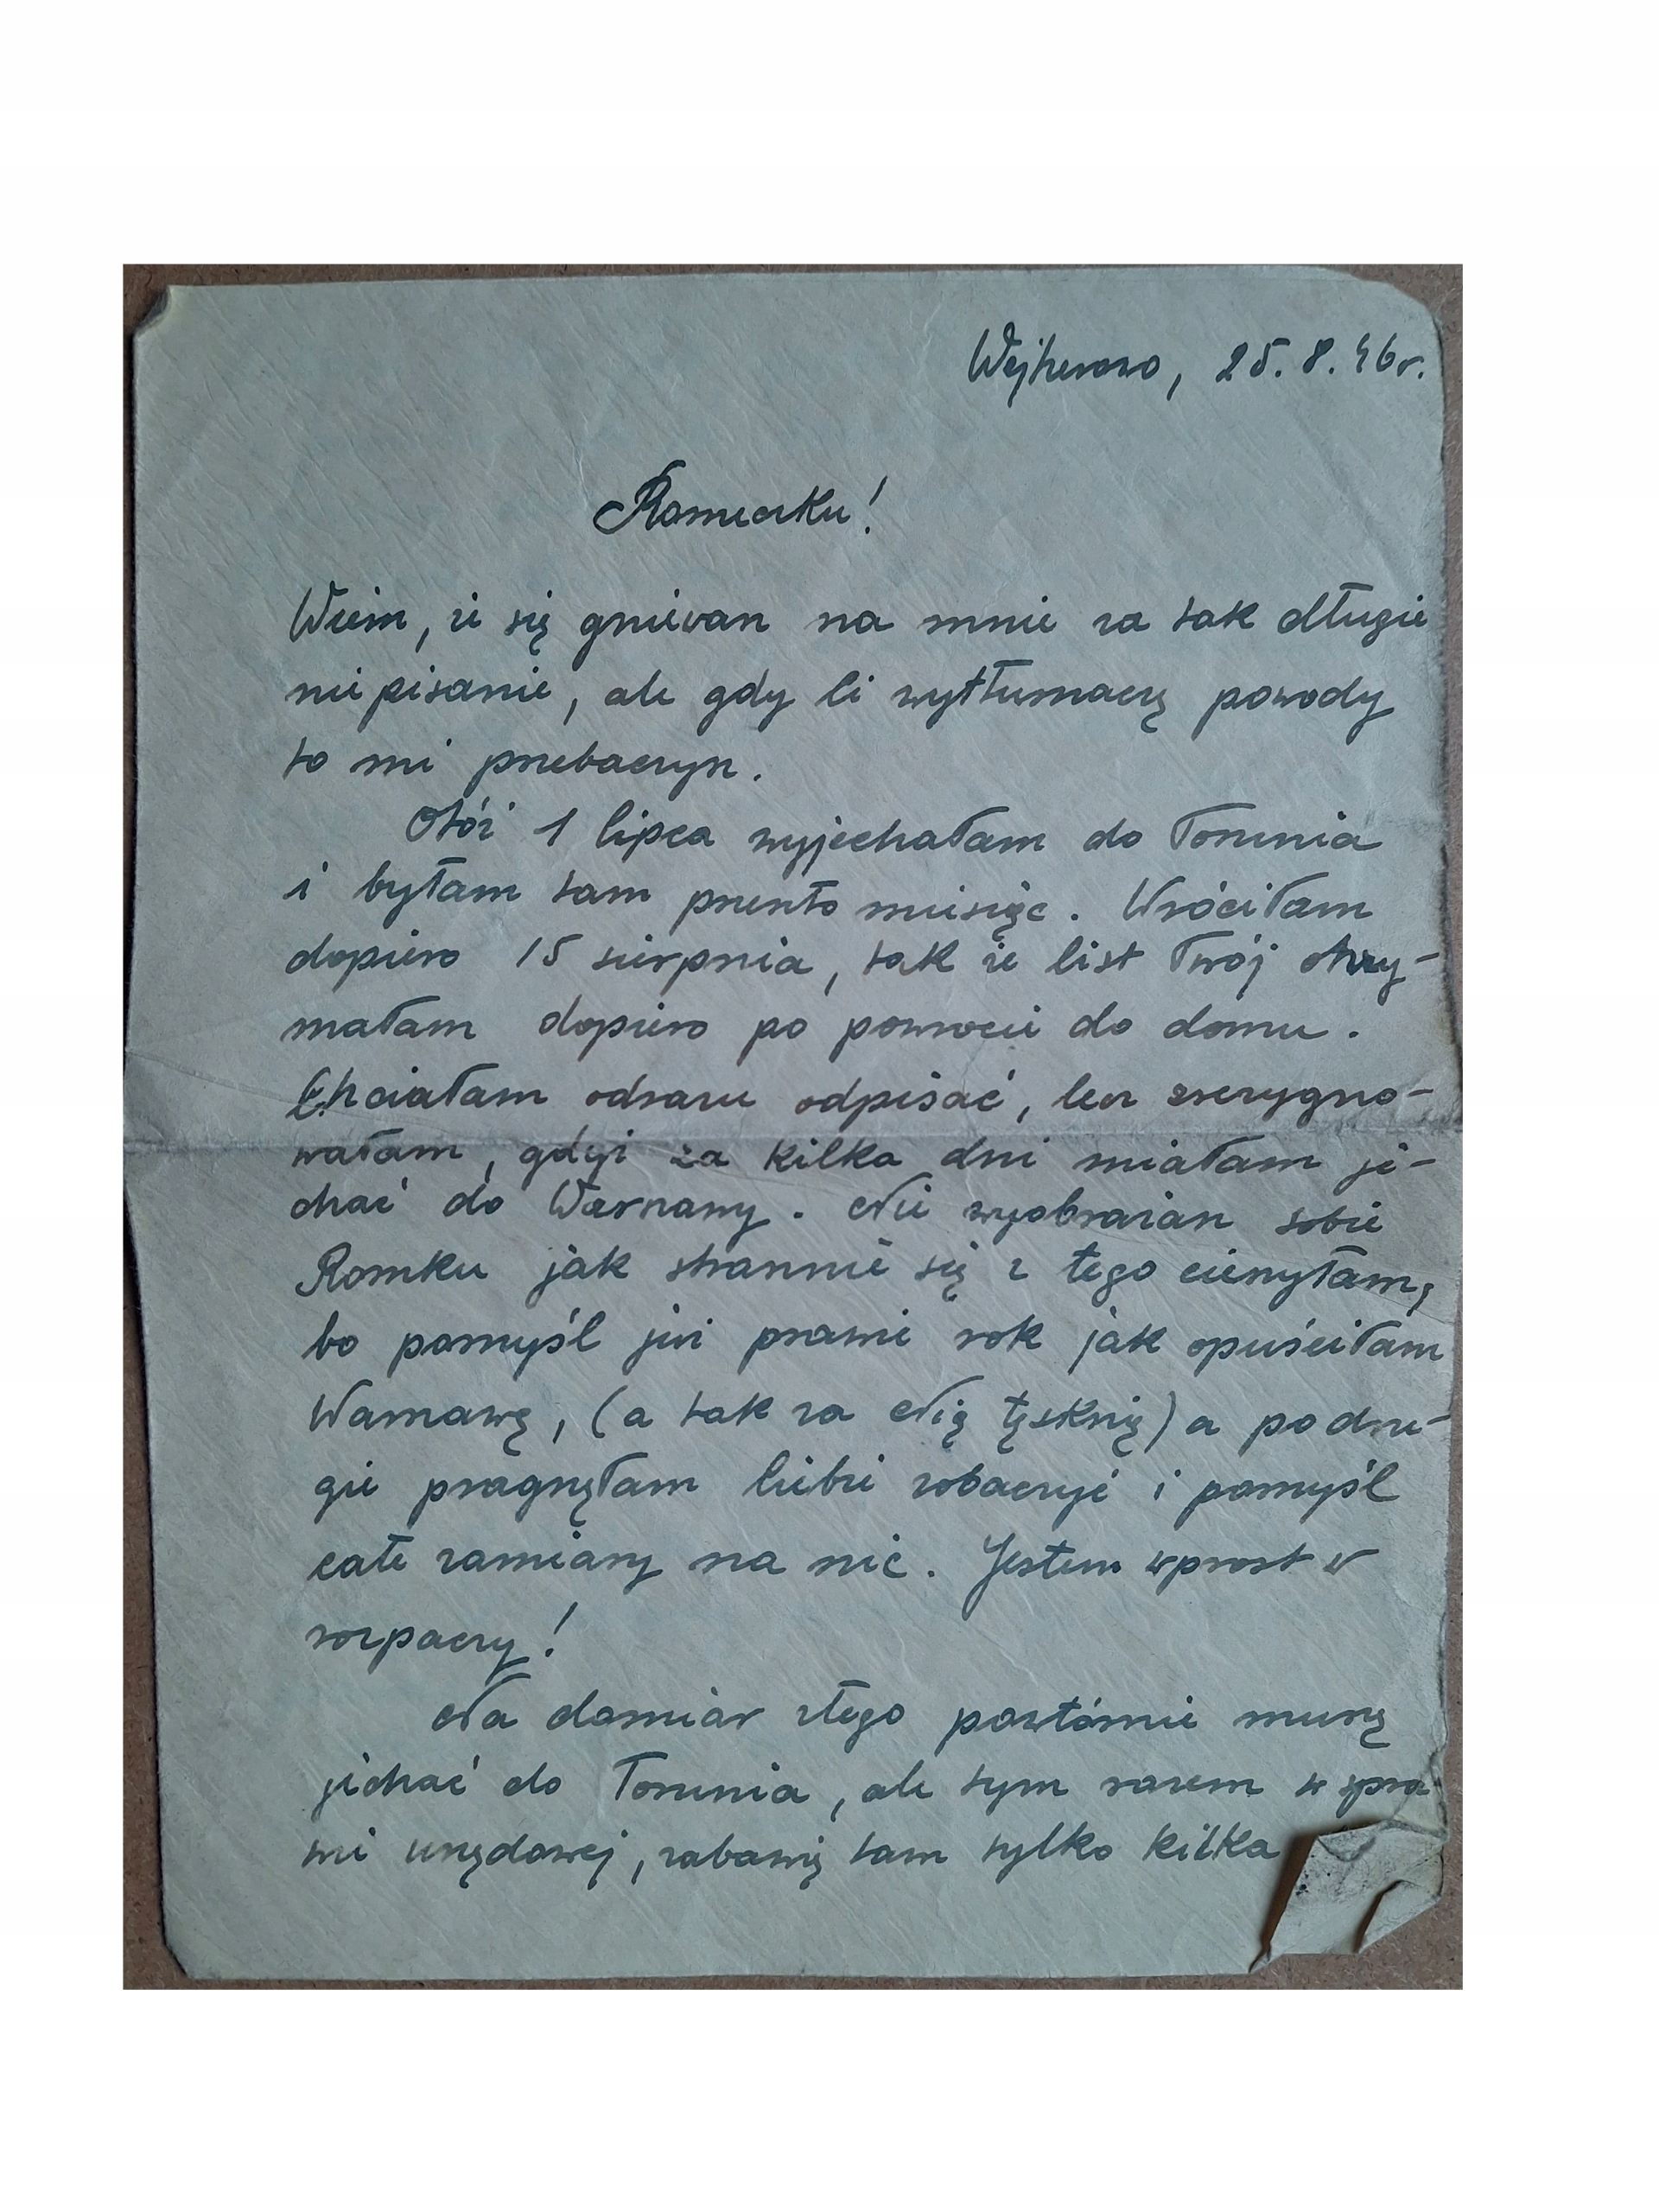 Wejherowo, 25.8.46r.
Romeczku!
Wiem, że się gniewasz na mnie za tak długie
nie pisanie, ale gdy Ci wytłumaczę powody
to mi przebaczysz.
Otóż 1 lipca wyjechałam do Torunia
i byłam tam przeszło miesiąc. Wróciłam
dopiero 15 sierpnia, tak że list Twój otrzy-
małam dopiero po powrocie do domu.
Chciałam odrazu odpisać, lecz zrezygno-
wałam, gdyż za kilka dni miałam je-
chać do Warszawy. Nie wyobrażasz sobie
Romku jak strasznie się z tego cieszyłam,
bo pomyśl już prawie rok jak opuściłam
Warszawę, (a tak za Nią tęsknię) a po dru-
gie pragnęłam Ciebie zobaczyć i pomyśl
całe zamiary na nic. Jestem wprost w
rozpaczy!
Na domiar złego powtórnie muszę
jechać do Torunia, ale tym razem w spra-
wie urzędowej, zabawię tam tylko kilka